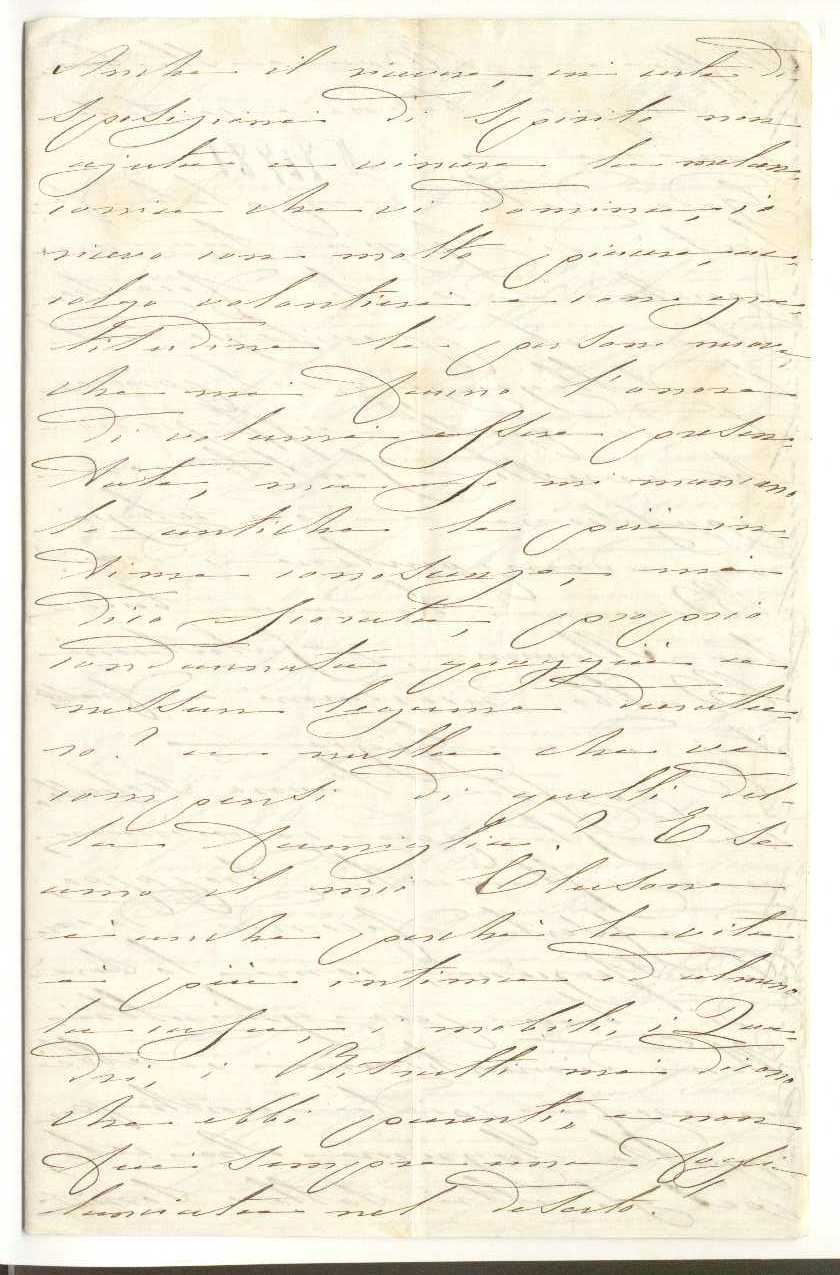 Anche il ricevere, in certe di
sposizioni di spirito non
ajuta a vincere la melan-
conia che vi domina, io
ricevo con molto piacere, ac-
colgo volontieri e con gra-
titudine le persone nuove,
che mi fanno l'onore
di volermi essere presen-
tate, ma se mi mancano
le antiche le più in-
time conoscenze, mi
dico sfiorata, proprio
condannata quaggiù a
nessun legame duratu-
ro? a nulla che vi
compensi di quelli del-
la famiglia? E se
amo il mio Clusone
è anche perchè la vita
è più intima ed almeno
la casa, i mobili, i Qua-
dri, i Ritratti mi dicono
che ebbi parenti, e non
fui sempre una foglia
lanciata nel deserto.